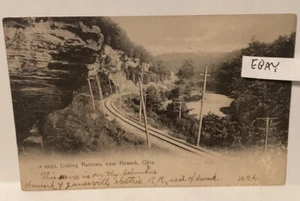 EBAY
Licking Narrows, near Newark, Ohio.
This scene is on the Columbus
Newark & Zanesville Electric R.R. east of Newark.